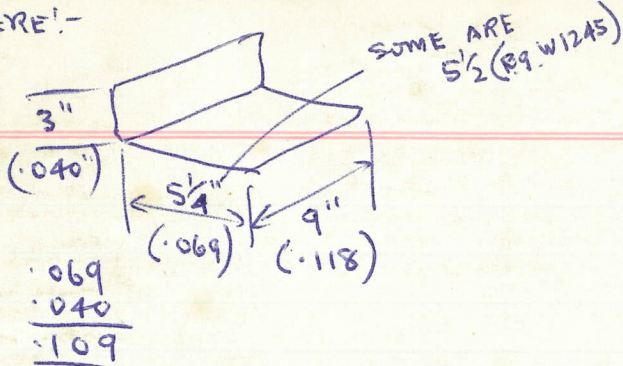 ERE:-
SOME ARE
5½ (e.g. W1245)
3"
(.040")
5¼"
(.069)
9"
(.118)
.069
.040
.109